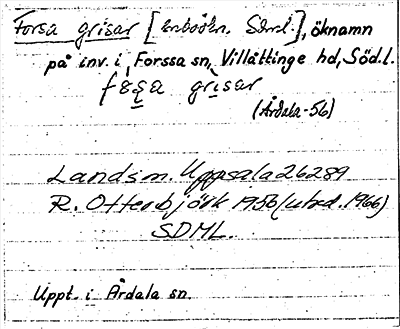 Forsa grisar [inbokn. Sdml.], öknamn
på inv. i Forssa sn, Villåttinge hd, Söd.l.
grisar
(Årdala-56)
Landsm. Uppsala 26289
R. Otterbjörk 1956 (utred. 1966)
SDML.
Uppt. i Årdala sn.